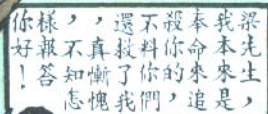 梁先生，
我本來是
奉命來追
殺你的，
不料你們
還救了我
，真慚愧
，不知怎
樣報答
你好！